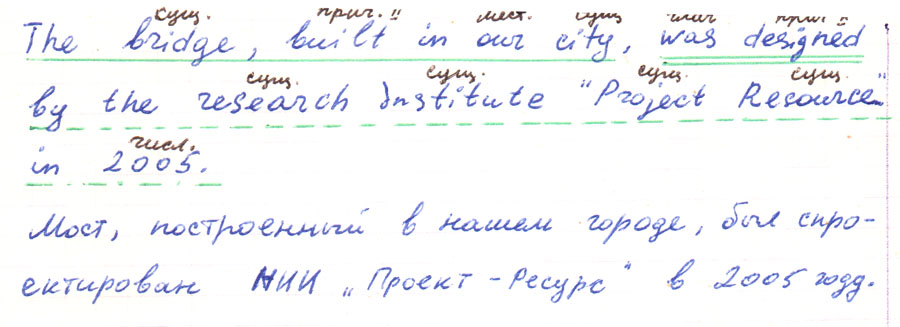 сущ. прич. II мест. сущ глаг прич. II
The bridge, built in our city, was designed
сущ. сущ. сущ. сущ.
by the research Institute "Project Resource"
числ.
in 2005.
Мост, построенный в нашем городе, был спро-
ектирован НИИ „Проект-Ресурс" в 2005 году.